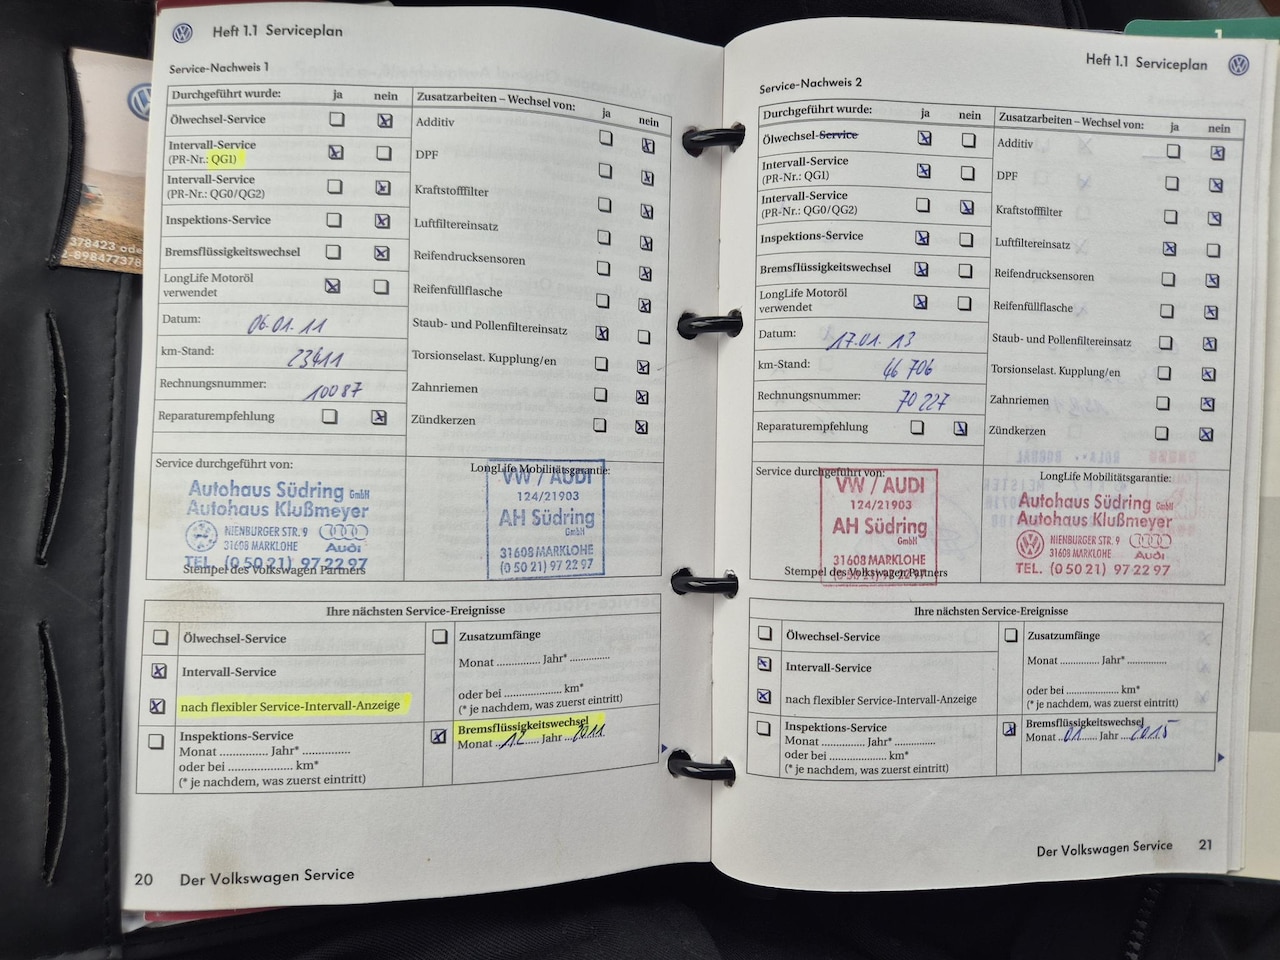 Heft 1.1 Serviceplan
Service-Nachweis 1
Durchgeführt wurde: ja nein
Ölwechsel-Service
Intervall-Service
(PR-Nr.: QG1)
Intervall-Service
(PR-Nr.: QG0/QG2)
Inspektions-Service
Bremsflüssigkeitswechsel
LongLife Motoröl
verwendet
Datum: 06.01.11
km-Stand: 23411
Rechnungsnummer: 10087
Reparaturempfehlung
Zusatzarbeiten – Wechsel von: ja nein
Additiv
DPF
Kraftstofffilter
Luftfiltereinsatz
Reifendrucksensoren
Reifenfüllflasche
Staub- und Pollenfiltereinsatz
Torsionselast. Kupplung/en
Zahnriemen
Zündkerzen
Service durchgeführt von:
Autohaus Südring GmbH
Autohaus Klußmeyer
NIENBURGER STR. 9
31608 MARKLOHE Audi
TEL. (0 50 21) 97 22 97
Stempel des Volkswagen Partners
LongLife Mobilitätsgarantie:
VW / AUDI
124/21903
AH Südring
GmbH
31608 MARKLOHE
(0 50 21) 97 22 97
Ihre nächsten Service-Ereignisse
Ölwechsel-Service
Intervall-Service
nach flexibler Service-Intervall-Anzeige
Inspektions-Service
Monat .............. Jahr* ..............
oder bei .................... km*
(* je nachdem, was zuerst eintritt)
Zusatzumfänge
Monat .............. Jahr* ..............
oder bei .................... km*
(* je nachdem, was zuerst eintritt)
Bremsflüssigkeitswechsel
Monat 12 Jahr 2011
20 Der Volkswagen Service
378423 ode
2-898477378
Heft 1.1 Serviceplan
Service-Nachweis 2
Durchgeführt wurde: ja nein
Ölwechsel-Service
Intervall-Service
(PR-Nr.: QG1)
Intervall-Service
(PR-Nr.: QG0/QG2)
Inspektions-Service
Bremsflüssigkeitswechsel
LongLife Motoröl
verwendet
Datum: 17.01.13
km-Stand: 46 706
Rechnungsnummer: 70 227
Reparaturempfehlung
Zusatzarbeiten – Wechsel von: ja nein
Additiv
DPF
Kraftstofffilter
Luftfiltereinsatz
Reifendrucksensoren
Reifenfüllflasche
Staub- und Pollenfiltereinsatz
Torsionselast. Kupplung/en
Zahnriemen
Zündkerzen
Service durchgeführt von:
VW / AUDI
124/21903
AH Südring
GmbH
31608 MARKLOHE
(0 50 21) 97 22 97
Stempel des Volkswagen Partners
LongLife Mobilitätsgarantie:
Autohaus Südring GmbH
Autohaus Klußmeyer
NIENBURGER STR. 9
31608 MARKLOHE Audi
TEL. (0 50 21) 97 22 97
Ihre nächsten Service-Ereignisse
Ölwechsel-Service
Intervall-Service
nach flexibler Service-Intervall-Anzeige
Inspektions-Service
Monat .............. Jahr* ..............
oder bei .................... km*
(* je nachdem, was zuerst eintritt)
Zusatzumfänge
Monat .............. Jahr* ..............
oder bei .................... km*
(* je nachdem, was zuerst eintritt)
Bremsflüssigkeitswechsel
Monat 01 Jahr 2015
Der Volkswagen Service 21
1